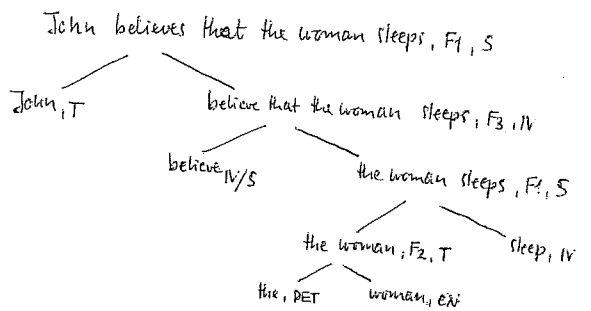 John believes that the woman sleeps, F1, S
John, T
believe that the woman sleeps, F3, IV
believe IV/S
the woman sleeps, F1, S
the woman, F2, T
sleep, IV
the, DET
woman, CN